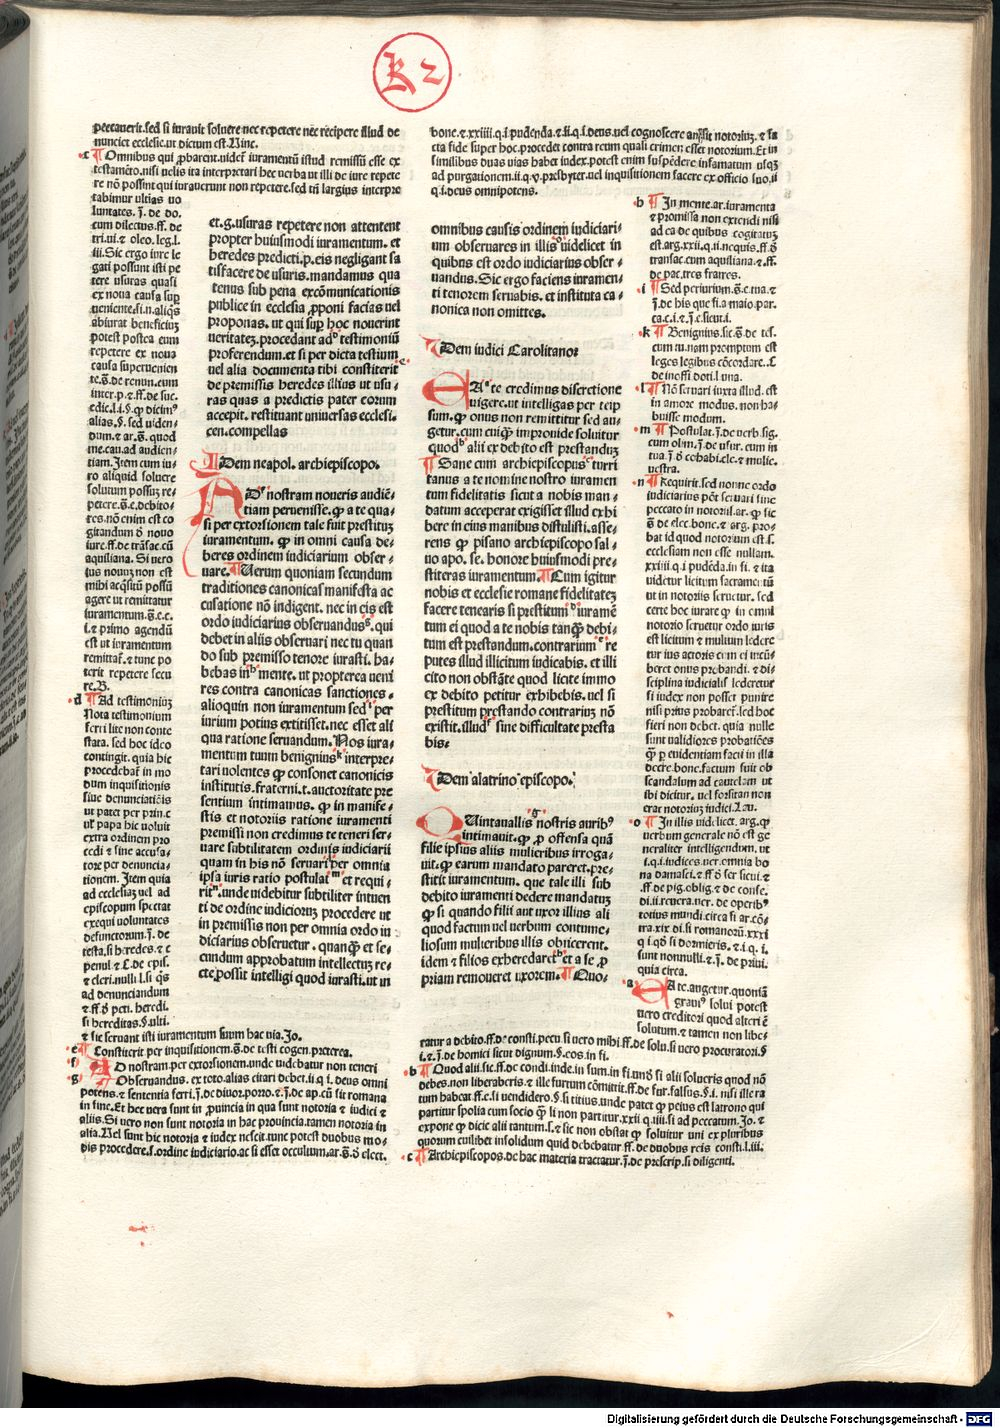 K 2
peccauerit.sed si iurauit soluere nec repetere nec recipere illud de
nunciet ecclesie.ut dictum est.Uinc.
c ¶ Omnibus qui ꝓbarent.uidet᷑ iuramentū istud remissū esse ex
testamēto.nisi uelis ita interpretari hec uerba ut illi de iure repete
re nō possint qui iurauerunt non repetere.sed tn̄ largius interpre
tabimur ultīas uo
luntates. ī. de do.
cum dilectus.ff. de
tri.ui. ⁊ oleo. leg.l.
iii. Sic ergo iure le
gati possunt isti pe
tere usuras quasi
ex noua causa suꝑ
ueniente.si.n.aliq̄s
abiurat beneficiuȝ
potest postea eum
repetere ex noua
causa superuenien
te.ḡ.de renun.cum
inter.p.⁊.ff.de suc.
edic.l.i.§.ꝙ dicim⁹
alias.§.sed uiden-
dum.⁊ ar.ḡ. quod
me.cau.ad audien-
tiam.Item cum iu-
ro aliquid soluere
solutum possuȝ re-
petere.ḡ.e.debito-
res.nō enim est co
gitandum đ nouo
iure.ff.de trāsac.cū
aquiliana. Si uero
ius nouuȝ non est
mihi acq̄sitū possū
agere ut remittatur
iuramentum.ḡ.e.c.
i.⁊ primo agendū
est ut iuramentum
remittat᷑.⁊ tunc po
terit repetere secu
re.B.
d ¶ Ad testimoniuȝ
Nota testimonium
ferri lite non conte
stata. sed hoc ideo
contingit. quia hic
procedebat᷑ in mo
dum inquisitionis
siue denunciatiōis
ut pater per prin.c
ul᷑ papa hic uoluit
extra ordinem pro
cedi ⁊ sine accusa-
tore per denuncia-
tionem. Item quia
ad ecclesiaȝ uel ad
episcopum spectat
exequi uoluntates
defunctorum.ī. de
testa.si heredes.⁊ c
penul.⁊ C.de epis.
⁊ cleri.nulli l.si q̄s
ad denunciandum
⁊.ff.đ peti. heredi.
si hereditas.§.ulti.
⁊ sic seruant isti iuramentum suum hac uia.Jo.
e ¶ Constiterit per inquisitionem.ḡ.de testi cogen.preterea.
f AD nostram.per extorsionem.unde uidebatur non teneri
g ¶ Obseruandus.ex toto.alias citari debet.ii.q i. deus omni
potens.⁊ sententia ferri.ī.de diuor.porro.⁊.ī.de ap.cū sit romana
in fine.Et hec uera sunt in ꝓuincia in qua sunt notoria ⁊ iudici ⁊
aliis.Si uero non sunt notoria in hac prouincia.tamen notoria in
alia.Uel sunt hic notoria ⁊ iudex nescit.tunc potest duobus mo-
dis procedere.s.ordine iudiciario.ac si esset occultum.ar.ḡ.đ elect.
et.g.usuras repetere non attentent
propter huiusmodi iuramentum. et
heredes predicti.p.eis negligant sa
tisfacere de usuris.mandamus qua
tenus sub pena excōmunicationis
publice in ecclesia ꝓponi facias uel
proponas. ut qui suꝑ hoc nouerint
ueritateȝ.procedant ad testimoniū
proferendum.et si per dicta testium
uel alia documenta tibi constiterit
de premissis heredes illius ut usu-
ras quas a predictis pater eorum
accepit. restituant uniuersas ecclesi.
cen.compellas
¶ Idem neapol. archiepiscopo.
AD nostram noueris audiē-
tiam peruenisse.ꝙ a te qua-
si per extorsionem tale fuit prestituȝ
iuramentum. ꝙ in omni causa de-
beres ordinem iudiciarium obser-
uare. ¶ Uerum quoniam secundum
traditiones canonicas manifesta ac
cusatione nō indigent. nec in eis est
ordo iudiciarius obseruandus. qui
debet in aliis obseruari nec tu quan
do sub premisso tenore iurasti. ha-
bebas in mente. ut propterea ueni
res contra canonicas sanctiones-
alioquin non iuramentum sed per
iurium potius extitisset.nec esset ali
qua ratione seruandum.Nos iura-
mentum tuum benignius interpre-
tari uolentes ꝙ consonet canonicis
institutis.fraterni.t.auctoritate pre
sentium intimamus. ꝙ in manife-
stis et notoriis ratione iuramenti
premissi non credimus te teneri ser-
uare subtilitatem ordinis iudiciarii
quam in his nō seruari per omnia
ipsa iuris ratio postulat et requi-
rit. unde uidebitur subtiliter intuen
ti de ordine iudicioruȝ procedere ut
in premissis non per omnia ordo iu
diciarius obseruetur. quanꝙ̄ et se-
cundum approbatum intellectuȝ re-
cte possit intelligi quod iurasti.ut in
bone.⁊ xxiiii.q.i.pudenda.⁊.ii.q.i.deus.uel cognoscere an sit notoriuȝ.⁊ fa
cta fide super hoc.procedet contra reum quasi crimen esset notorium.Et in
similibus duas uias habet iudex.potest enim suspēdere infamatum usq̄ȝ
ad purgationem.ii.q.v.presbyter.uel inquisitionem facere ex officio suo.ii
q.i.deus omnipotens.
omnibus causis ordinem iudiciari-
um obseruares in illis uidelicet in
quibus est ordo iudiciarius obser-
uandus. Sic ergo faciens iuramen-
ti tenorem seruabis. et instituta ca-
nonica non omittes.
¶ Idem iudici Carolitanoꝝ
EA te credimus discretione
uigere.ut intelligas per teip
sum. ꝙ onus non remittitur sed au-
getur.cum cuiꝙ̄ improuide soluitur
quod alii ex debito est prestanduȝ
¶ Sane cum archiepiscopus turri
tanus a te nomine nostro iuramen
tum fidelitatis sicut a nobis man-
datum acceperat exigisset illud exhi
bere in eius manibus distulisti.asse-
rens ꝙ pisano archiepiscopo sal-
uo apo. se. honore huiusmodi pre-
stiteras iuramentum. ¶ Cum igitur
nobis et ecclesie romane fidelitateȝ
facere tenearis si prestitum iuramē
tum ei quod a te nobis tanꝙ̄ debi-
tum est prestandum.contrarium re
putes illud illicitum iudicabis. et illi
cito non obstāte quod licite immo
ex debito petitur exhibebis. uel si
prestitum prestando contrariuȝ nō
existit.illud sine difficultate presta
bis:
¶ Idem alatrino episcopo.
QUintauallis nostris aurib⁹
intimauit.ꝙ ꝓ offensa quā
filie ipsius aliis mulieribus irroga-
uit.ꝙ earum mandato pareret.pre-
stitit iuramentum. que tale illi sub
debito iuramenti dedere mandatuȝ
ꝙ si quando filii aut uxor illius ali
quod factum uel uerbum contume-
liosum mulieribus illis obiicerent.
idem ⁊ filios exheredaret et a se ꝓ
priam remoueret uxorem. ¶ Quo-
h ¶ In mente.ar.iuramenta
⁊ promissa non extendi nisi
ad ea de quibus cogitatuȝ
est.arg.xxii.q.ii.nequis.ff.đ
transac.cum aquiliana.⁊.ff.
de pac.tres fratres.
i ¶ Sed periurium.ḡ.e.tua.⁊
ī.de his que fi.a maio.par.
ca.c.i.⁊.ī.e.sicut.i.
k ¶ Benignius.sic.ḡ.de tes.
cum tu.nam promptum est
leges legibus cōcordare..C
de inoffi.doti.l.una.
l ¶ Nō seruari iuxta illud.est
in amore modus.non ha-
buisse modum.
m ¶ Postulat.ī.de uerb.sig.
cum olim.ī.de usur.cum in
tua.ī đ cohabi.cle.⁊ mulie.
uestra.
n ¶ Requirit.sed nonne ordo
iudiciarius pōt seruari sine
peccato in notoriī.ar.ꝙ sic
ḡ de elec.bone.⁊ arg. pro-
bat id quod notorium est.s.
ecclesiam non esse nullam.
xxiiii q.i pudēda.in fi.⁊ ita
uidetur licitum sacramētū
ut in notoriis seruetur. sed
certe hoc iurare ꝙ in omni
notorio seruetur ordo iuris
est licitum ⁊ multum ledere
tur ius actoris cum ei incū-
beret onus probandi. ⁊ di-
sciplina iudicialis lederetur
si iudex non posset punire
nisi prius probaret᷑.sed hoc
fieri non debet.quia nulle
sunt ualidiores probatiōes
ꝙ̄ ꝑ euidentiam facti in illa
decre.bone.factum fuit ob
scandalum ad cautelam ut
ibi dicitur.uel forsitan non
erat notoriuȝ iudici.Lau.
o ¶ In illis uidelicet.arg.ꝙ
uerbum generale nō est ge
neraliter intelligendum.ut
i.q.i.iudices.uer.omnia bo
na damasci.⁊ ff đ ser sicui.⁊
.ff.de pig.oblig.⁊ de confe.
di.ii.reuera.uer.de operib⁹
totius mundi.circa fi ar.cō-
tra.xix di.si romanorū.xxxi
q i qd̄ si dormieris.⁊.i q.i.
sunt nonnulli.⁊.ī.de priui.
quia circa.
a EA te.angetur.quoniā
graui⁹ solui potest
uero creditori quod alteri ē
solutum.⁊ tamen non libe-
ratur a debito.ff.de consti.pecu.si uero mihi ff.de solu.si uero procuratori.§
i.⁊.ī.de homici sicut dignum.§.eos.in fi.
b ¶ Quod alii.sic.ff.de condi.inde.in sum.in fi.und̄ si alii solueris quod nō
debes.non liberaberis.⁊ ille furtum cōmittit.ff.de fur.falsus.§.i. nisi ille ra
tum habeat.ff.e.si uendidero.§.si titius.unde patet ꝙ peius est latroni qui
partitur spolia cum socio ꝙ̄ li non partitur.xxii q.iiii.si ad peccatum.Jo.⁊
expone ꝙ dicit alii tantum.s.⁊ sic non obstat ꝙ soluitur uni ex pluribus
quorum cuilibet insolidum quid debebatur ff.de duobus reis consti.l.iii.
c ¶ Archiepiscopos.de hac materia tractatur.ī.de prescrip.si diligenti.
Digitalisierung gefördert durch die Deutsche Forschungsgemeinschaft - DFG